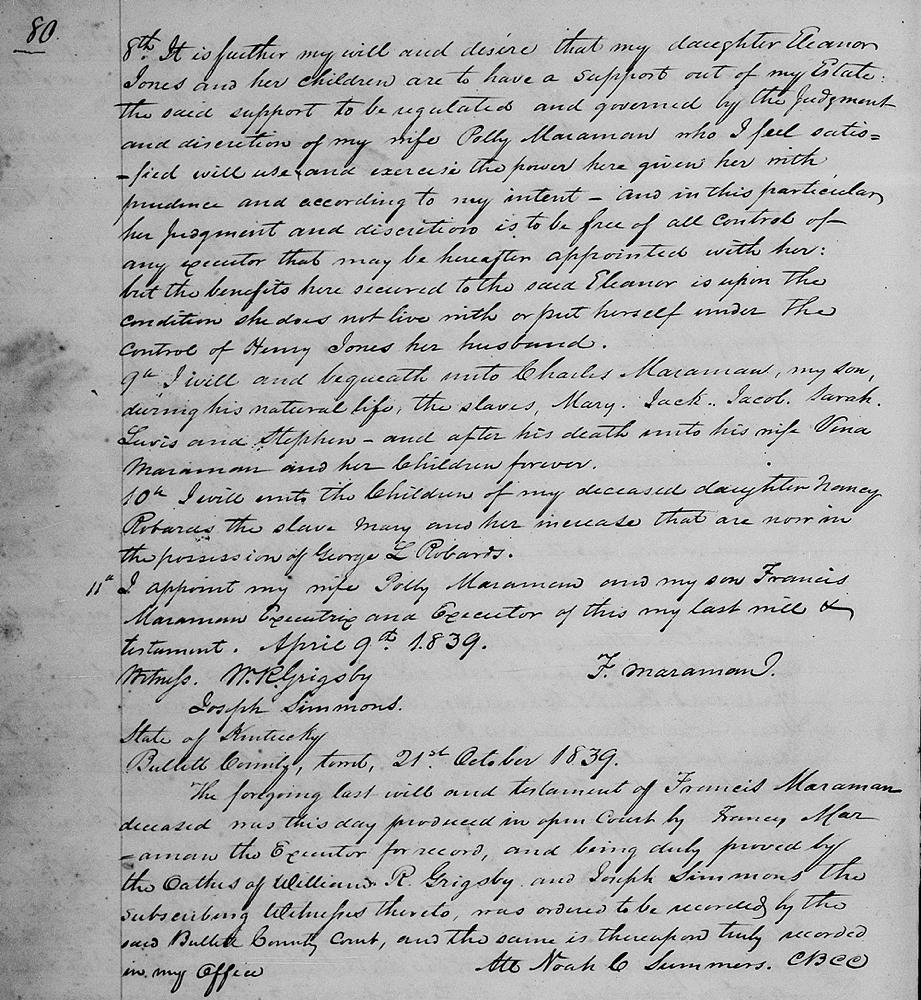 80.
8th. It is further my will and desire that my daughter Eleanor
Jones and her children are to have a support out of my Estate:
the said support to be regulated and governed by the Judgment
and discretion of my wife Polly Maraman who I feel satis=
-fied will use and exercise the power here given her with
prudence and according to my intent - and in this particular
her Judgment and discretion is to be free of all control of
any executor that may be hereafter appointed with her:
but the benefits here secured to the said Eleanor is upon the
condition she does not live with or put herself under the
control of Henry Jones her husband.
9th I will and bequeath unto Charles Maraman, my son,
during his natural life, the slaves, Mary. Jack.. Jacob. Sarah.
Lewis and Stephen - and after his death unto his wife Vina
Maraman and her Children forever.
10th I will unto the Children of my deceased daughter Nancy
Robards the slave Mary and her increase that are now in
the possession of George L Robards.
11th I appoint my wife Polly Maraman and my son Francis
Maraman Executrix and Executor of this my last will &
testament. April 9th. 1839.
Witness. W. R. Grigsby F. Maraman
Joseph Simmons.
State of Kentucky
Bullitt County, towit, 21st. October 1839.
The foregoing last will and testament of Francis Maraman
deceased was this day produced in open Court by Francis Mar
-aman the Executor for record, and being duly proved by
the Oathes of William R. Grigsby and Joseph Simmons the
subscribing Witnesses thereto, was ordered to be recorded by the
said Bullitt County Court, and the same is thereupon truly recorded
in my Office Att Noah C Summers. CBCC